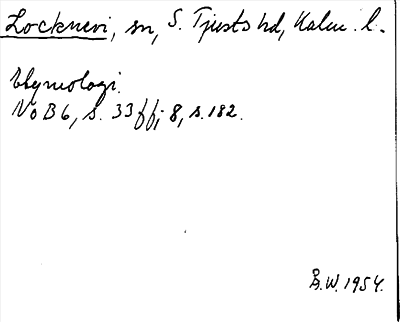 Locknevi, sn, S. Tjusts hd, Kalm. l.
Etymologi.
NoB 6, s. 33 ff; 8, s. 182.
B.W. 1954.